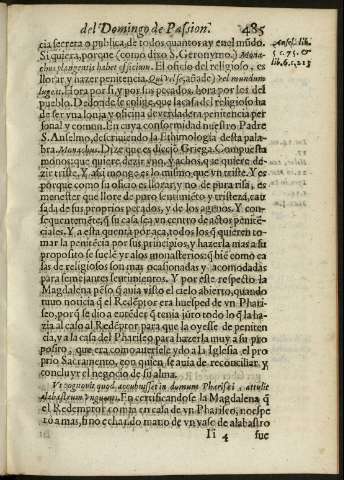 del Domingo de Passion. 485
cia secreta o publica, de todos quantos ay en el mũdo.
Si quiera, porque (como dixo S. Geronymo.) Mona-
chus plangentis habet officium. El oficio del religioso, es
llorar y hazer penitencia. Qui vel se, añade) vel mundum
lugeat. Hora por si, y por sus pecados, hora por los del
pueblo. De donde se colige, que la casa del religioso ha
de ser vna lonja y oficina de verdadera penitencia per
sonal y comun. En cuya conformidad nuestro Padre
S. Anselmo, descriuiendo la Ethimologia desta pala-
bra. Monachus. Dize que es dicciõ Griega. Compuesta
monos: que quiere dezir vno. Y achos, que quiere de-
zir triste. Y assi monge es lo mismo que vn triste. Y es
porque como su oficio es llorar, y no de pura risa, es
menester que llore de puro sentimiẽto y tristeza, cau
sada de sus proprios pecados, y de los agenos. Y con-
sequentemẽte, q̃ su casa sea vn centro de actos peniten-
ciales. Y a esta quenta por aca, todos los q̃ quieren to-
mar la penitẽcia por sus principios, y hazerla mas a su
proposito se suelẽ yr a los monasterios: q̃ biẽ como ca
sas de religiosos son mas ocasionadas y acomodadas
para semejantes sentimientos. Y por este respecto la
Magdalena pẽsò q̃ auia visto el cielo abierto, quando
tuuo noticia q̃ el Redẽptor era huesped de vn Phari-
seo, por q̃ se dio a entẽder q̃ tenia jũto todo lo q̃ la ha-
zia al caso al Redẽptor para que la oyesse de peniten
cia, y a la casa del Phariseo para hazerla muy a su pro
posito, que era como auersele ydo a la Iglesia el pro
prio Sacramento, con quien se auia de reconciliar, y
concluyr el negocio de su alma.
Vt cognouit quod accubuisset in domum Pharisei, attulit
Alabastrum Vnguenti. En certificandose la Magdalena q̃
el Redemptor comia en casa de vn Phariseo, no espe
rò a mas, sino echando mano de vn vaso de alabastro
Ii 4 fue
Ansel. lib.
5 c. 75. &
lib. 6. c. 213